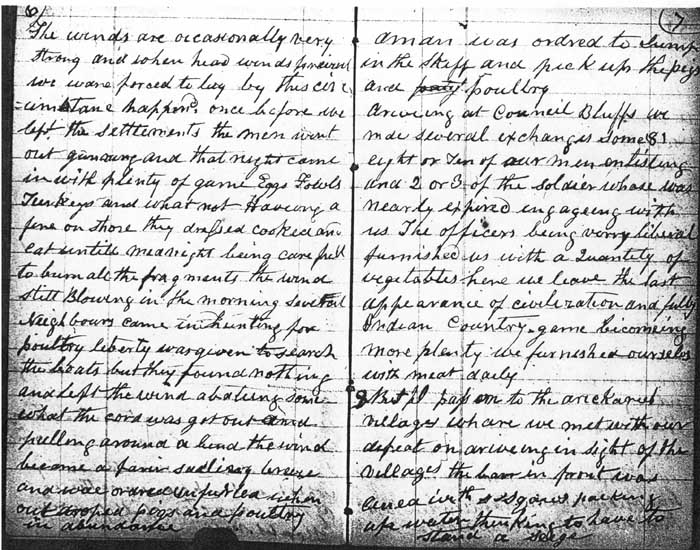 6)
The winds are occasonally very
strong and when head winds prevail
we ware forced to lay by this cir
cumstance happened once before we
left the settlements the men went
out gunning and that night came
in with plenty of game Eggs Fowls
Turkeys and what not Haveing a
fire on shore they dressed cooked and
eat untill midnight being care full
to burn all the fragments the wind
still Blowing in the morning Several
Neighbours came in hunting for
poultry liberty was given to search
the boats but they found nothing
and left the wind abateing some
what the cord was got out and
pulling around a bend the wind
became a fair sailing breeze
and ware ordred unfurled when
out droped pigs and poultry
in abundance
(7
aman was ordred to Jump
in the Skiff and pick up the pigs
and poultry
Ariveing at Council Bluffs we
made several exchanges some 8
eight or Ten of our men enlisting
and 2 or 3 of the soldier whose was
nearly expired engageing with
us The officers being verry liberal
furnished us with a Quantity of
vegetables here we leave the last
appearance of civileration and fully
Indian Country game becomeing
more plenty we furnished ourselvs
with meat daily
But I pass on to the arickaree
villages whare we met with our
defeat on ariveing in sight of the
villages the barr in front was
lined with squaws packing
up water thinking to have to
stand a siege